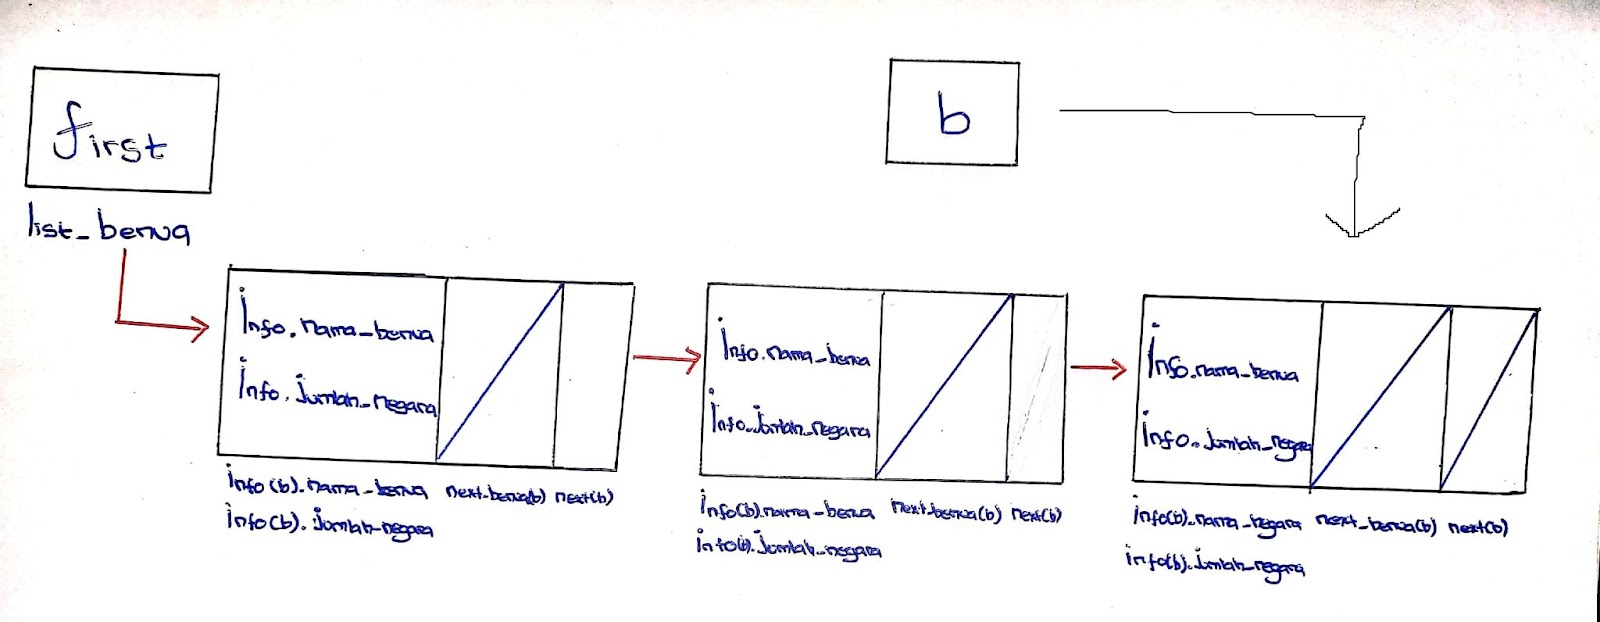 first
b
list_benua
Info.nama_benua
Info.jumlah_negara
Info.nama_benua
Info.jumlah_negara
Info.nama_benua
Info.jumlah_negara
Info(b).nama_benua next_benua(b) next(b)
Info(b).jumlah_negara
Info(b).nama_benua next_benua(b) next(b)
info(b).jumlah_negara
info(b).nama_negara next_benua(b) next(b)
info(b).jumlah_negara